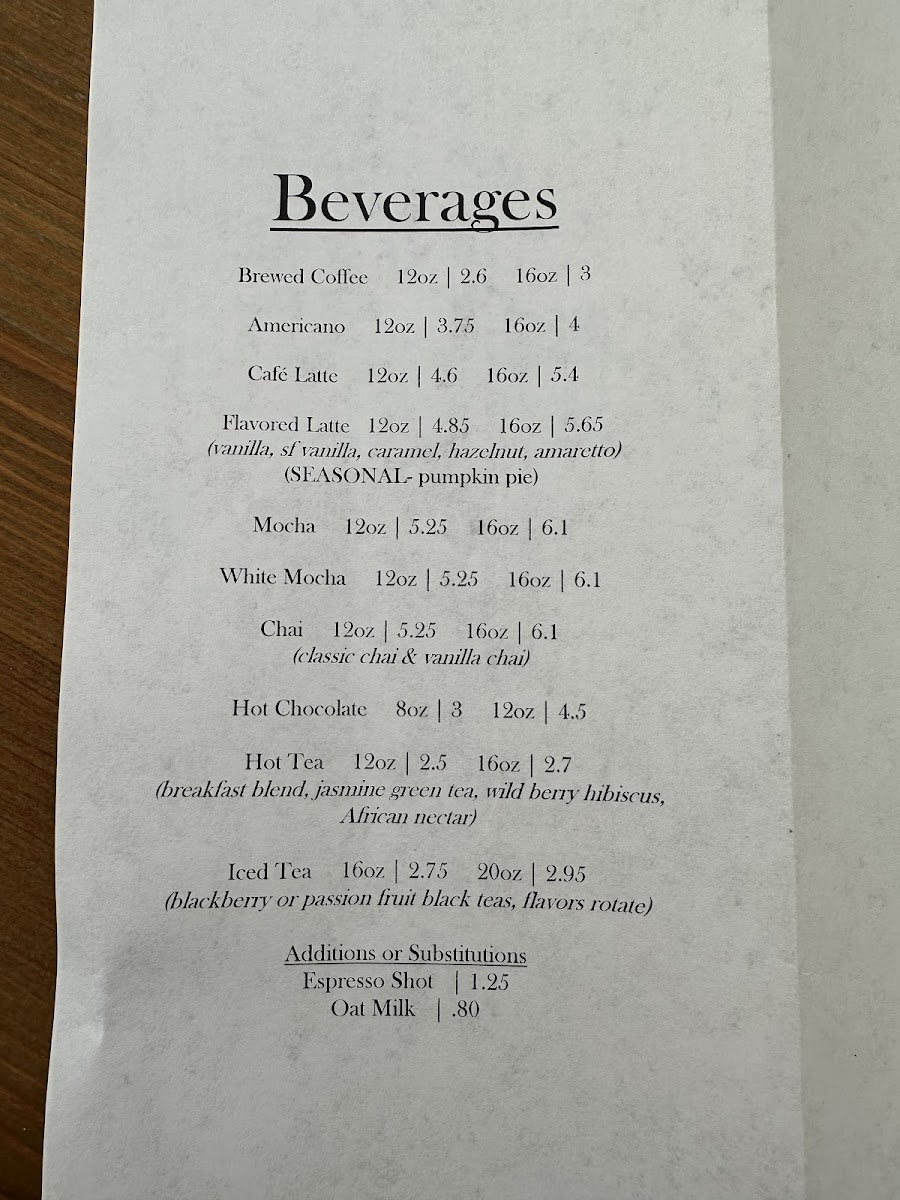 Beverages
Brewed Coffee 12oz | 2.6 16oz | 3
Americano 12oz | 3.75 16oz | 4
Café Latte 12oz | 4.6 16oz | 5.4
Flavored Latte 12oz | 4.85 16oz | 5.65
(vanilla, sf vanilla, caramel, hazelnut, amaretto)
(SEASONAL- pumpkin pie)
Mocha 12oz | 5.25 16oz | 6.1
White Mocha 12oz | 5.25 16oz | 6.1
Chai 12oz | 5.25 16oz | 6.1
(classic chai & vanilla chai)
Hot Chocolate 8oz | 3 12oz | 4.5
Hot Tea 12oz | 2.5 16oz | 2.7
(breakfast blend, jasmine green tea, wild berry hibiscus,
African nectar)
Iced Tea 16oz | 2.75 20oz | 2.95
(blackberry or passion fruit black teas, flavors rotate)
Additions or Substitutions
Espresso Shot | 1.25
Oat Milk | .80